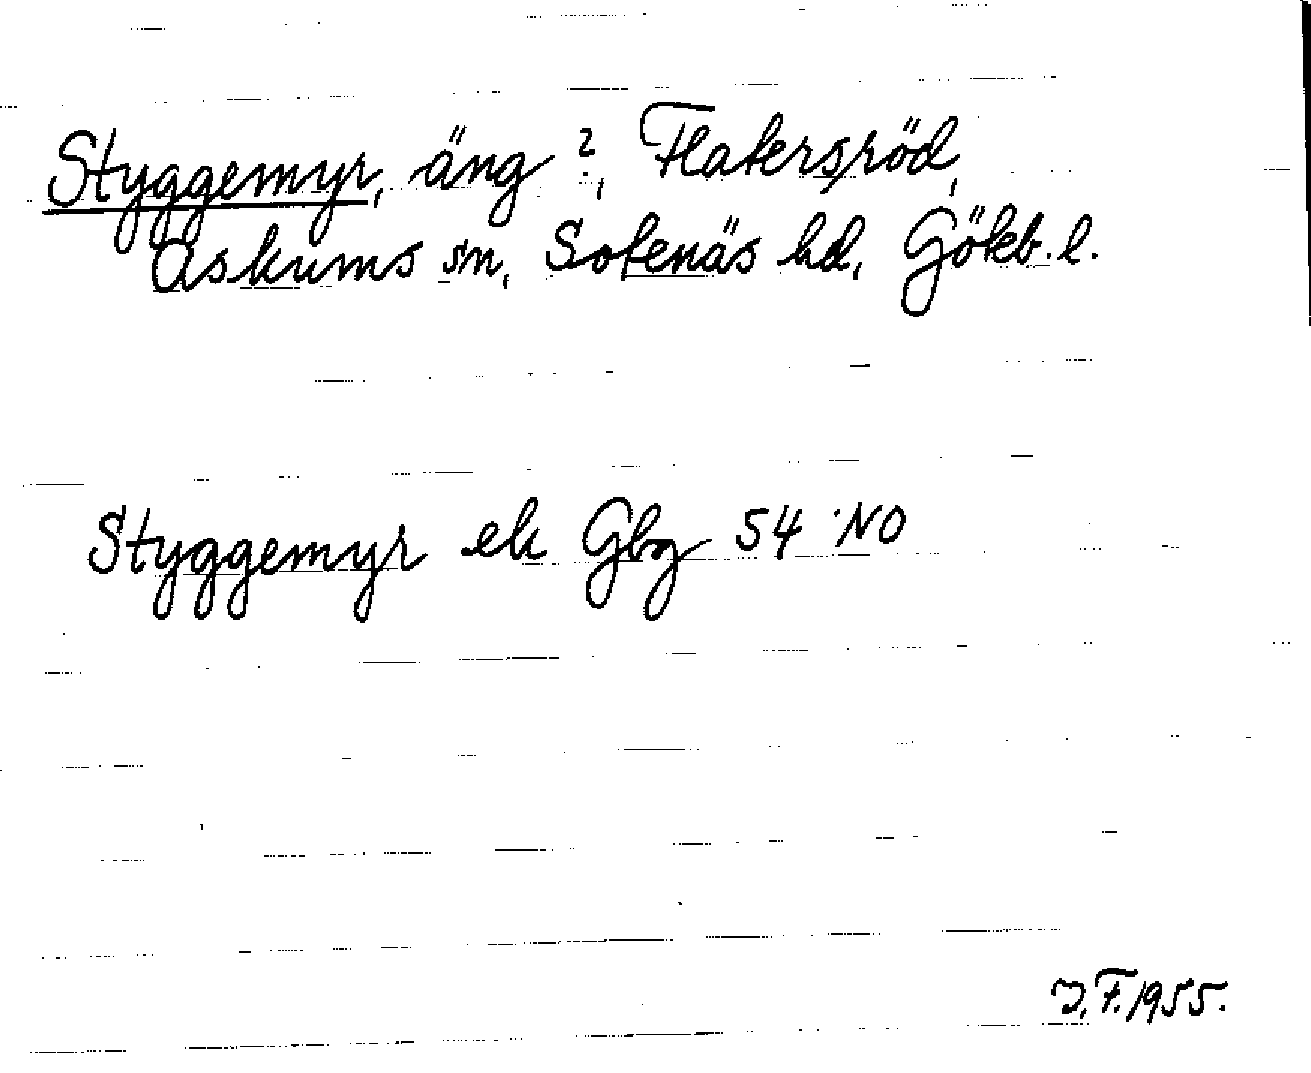 Styggemyr, äng ?, Flatersröd,
Askums sn, Sotenäs hd, Gökb. l.
Styggemyr ek Gbg 54 NO
J.F. 1955.